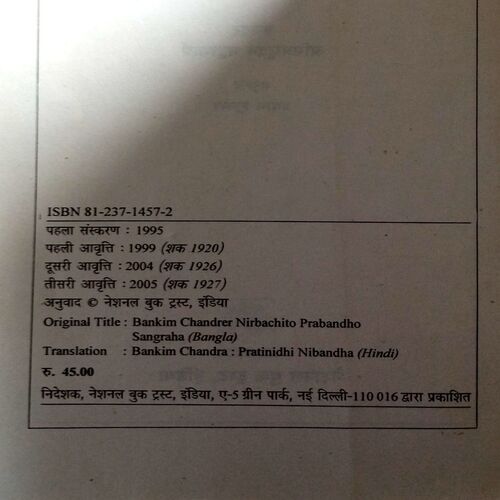 ISBN 81-237-1457-2
पहला संस्करण : 1995
पहली आवृत्ति : 1999 (शक 1920)
दूसरी आवृत्ति : 2004 (शक 1926)
तीसरी आवृत्ति : 2005 (शक 1927)
अनुवाद © नेशनल बुक ट्रस्ट, इंडिया
Original Title : Bankim Chandrer Nirbachito Prabandho
Sangraha (Bangla)
Translation : Bankim Chandra : Pratinidhi Nibandha (Hindi)
रु. 45.00
निदेशक, नेशनल बुक ट्रस्ट, इंडिया, ए-5 ग्रीन पार्क, नई दिल्ली-110 016 द्वारा प्रकाशित